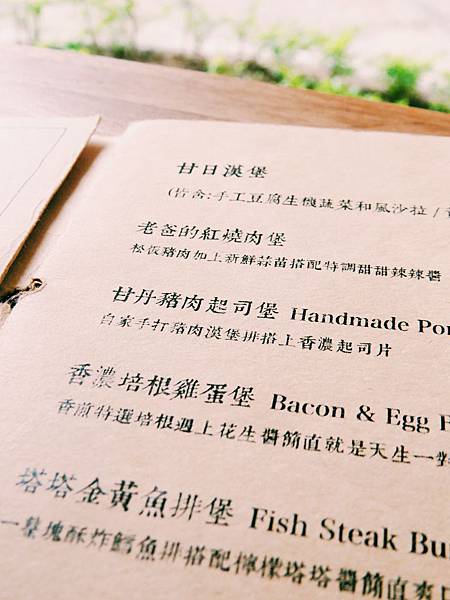 甘日漢堡
(皆含:手工豆腐生機蔬菜和風沙拉 /
老爸的紅燒肉堡
松阪豬肉加上新鮮蒜苗搭配特調甜甜辣辣醬
甘丹豬肉起司堡 Handmade Por
自家手打豬肉漢堡排搭上香濃起司片
香濃培根雞蛋堡 Bacon & Egg
香煎特選培根遇上花生醬簡直就是天生一對
塔塔金黃魚排堡 Fish Steak Bu
一整塊酥炸鱈魚排搭配檸檬塔塔醬簡直爽口